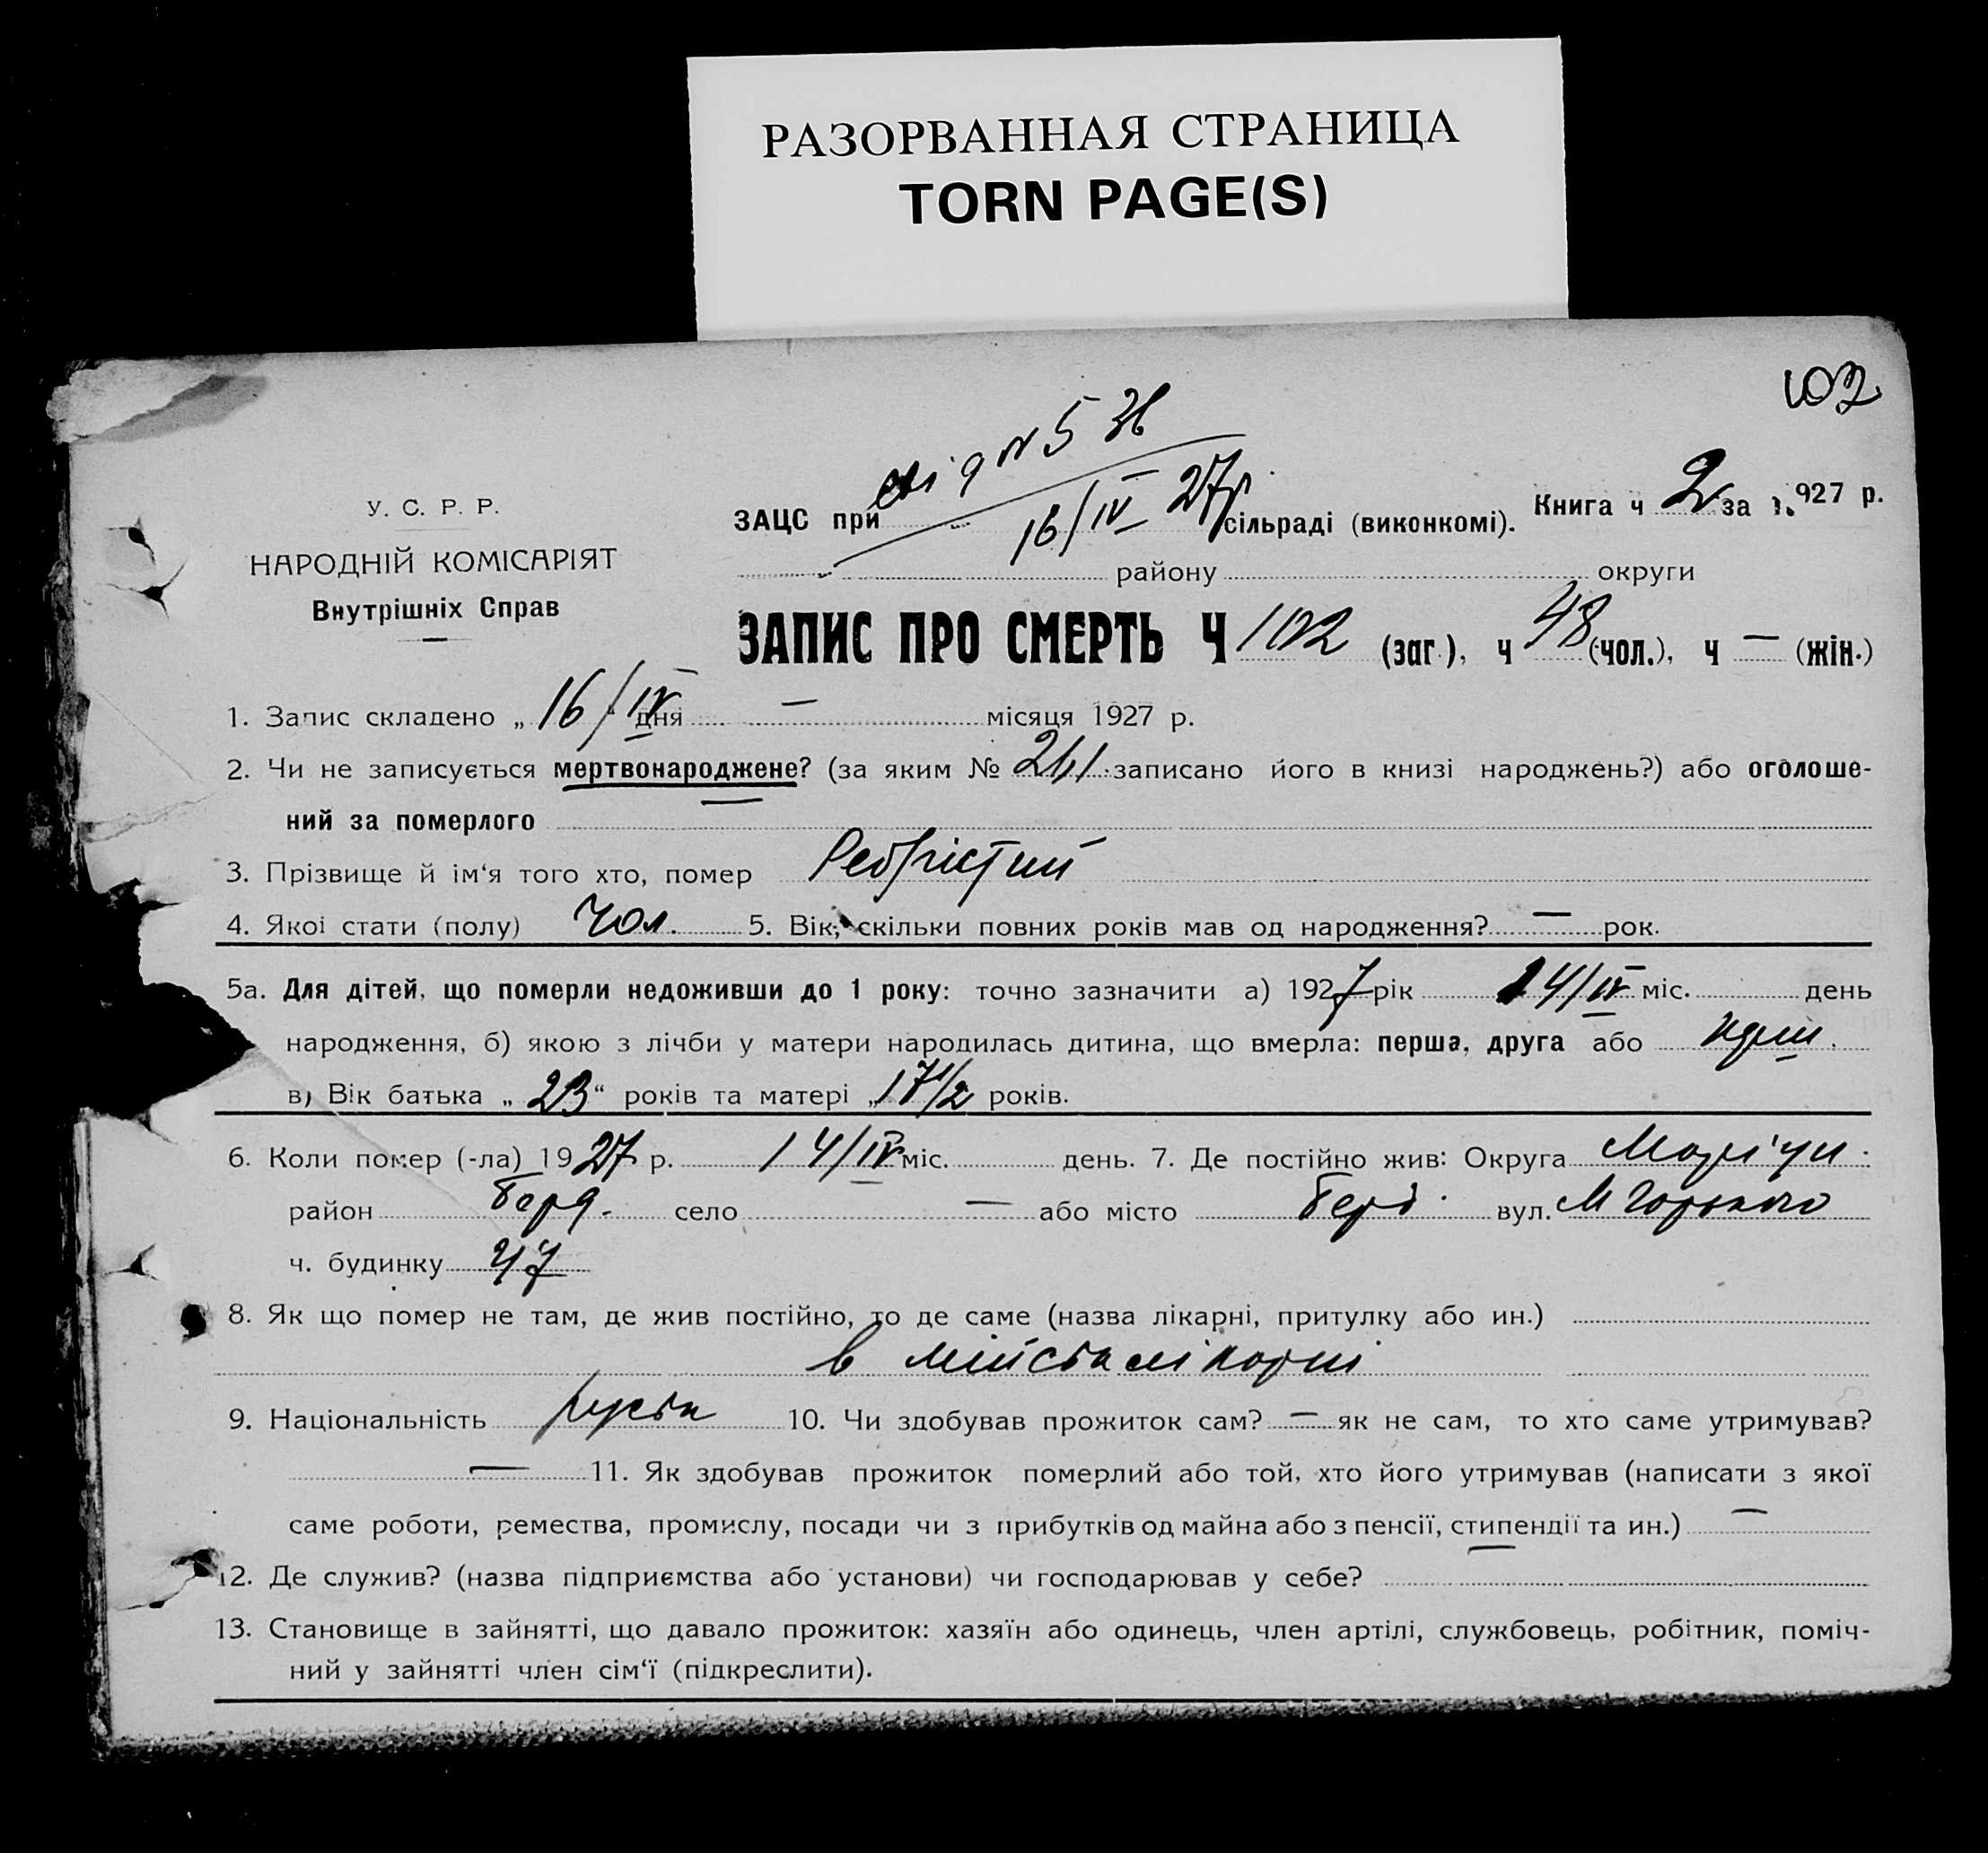 РАЗОРВАННАЯ СТРАНИЦА
TORN PAGE(S)
102
У. С. Р. Р.
НАРОДНІЙ КОМІСАРІЯТ
Внутрішніх Справ
16/IV 27р.
ЗАЦС при сільраді (виконкомі). Книга ч 2 за 1927 р.
району округи
ЗАПИС ПРО СМЕРТЬ Ч 102 (заг.), ч 48 (чол.), ч — (жін.)
1. Запис складено „ 16/IV “ дня — місяця 1927 р.
2. Чи не записується мертвонароджене? (за яким № 241 записано його в книзі народжень?) або оголоше-
ний за померлого —
3. Прізвище й ім‘я того хто, помер Ребристий
4. Якої стати (полу) чол. 5. Вік, скільки повних років мав од народження? — рок.
5а. Для дітей, що померли недоживши до 1 року: точно зазначити а) 1927 рік 14/IV міс. день
народження, б) якою з лічби у матери народилась дитина, що вмерла: перша, друга або
в) Вік батька „ 23 “ років та матері „ 17 1/2 років.
6. Коли помер (-ла) 1927 р. 14/IV міс. день. 7. Де постійно жив: Округа Маріуп.
район Берд. село — або місто Берд. вул. М Горького
ч. будинку 47
8. Як що помер не там, де жив постійно, то де саме (назва лікарні, притулку або ин.)
в лікарні
9. Національність руськ 10. Чи здобував прожиток сам? — як не сам, то хто саме утримував?
— 11. Як здобував прожиток померлий або той, хто його утримував (написати з якої
саме роботи, ремества, промислу, посади чи з прибутків од майна або з пенсії, стипендії та ин.) —
12. Де служив? (назва підприємства або установи) чи господарював у себе? —
13. Становище в зайнятті, що давало прожиток: хазяїн або одинець, член артілі, службовець, робітник, поміч-
ний у зайнятті член сім‘ї (підкреслити).